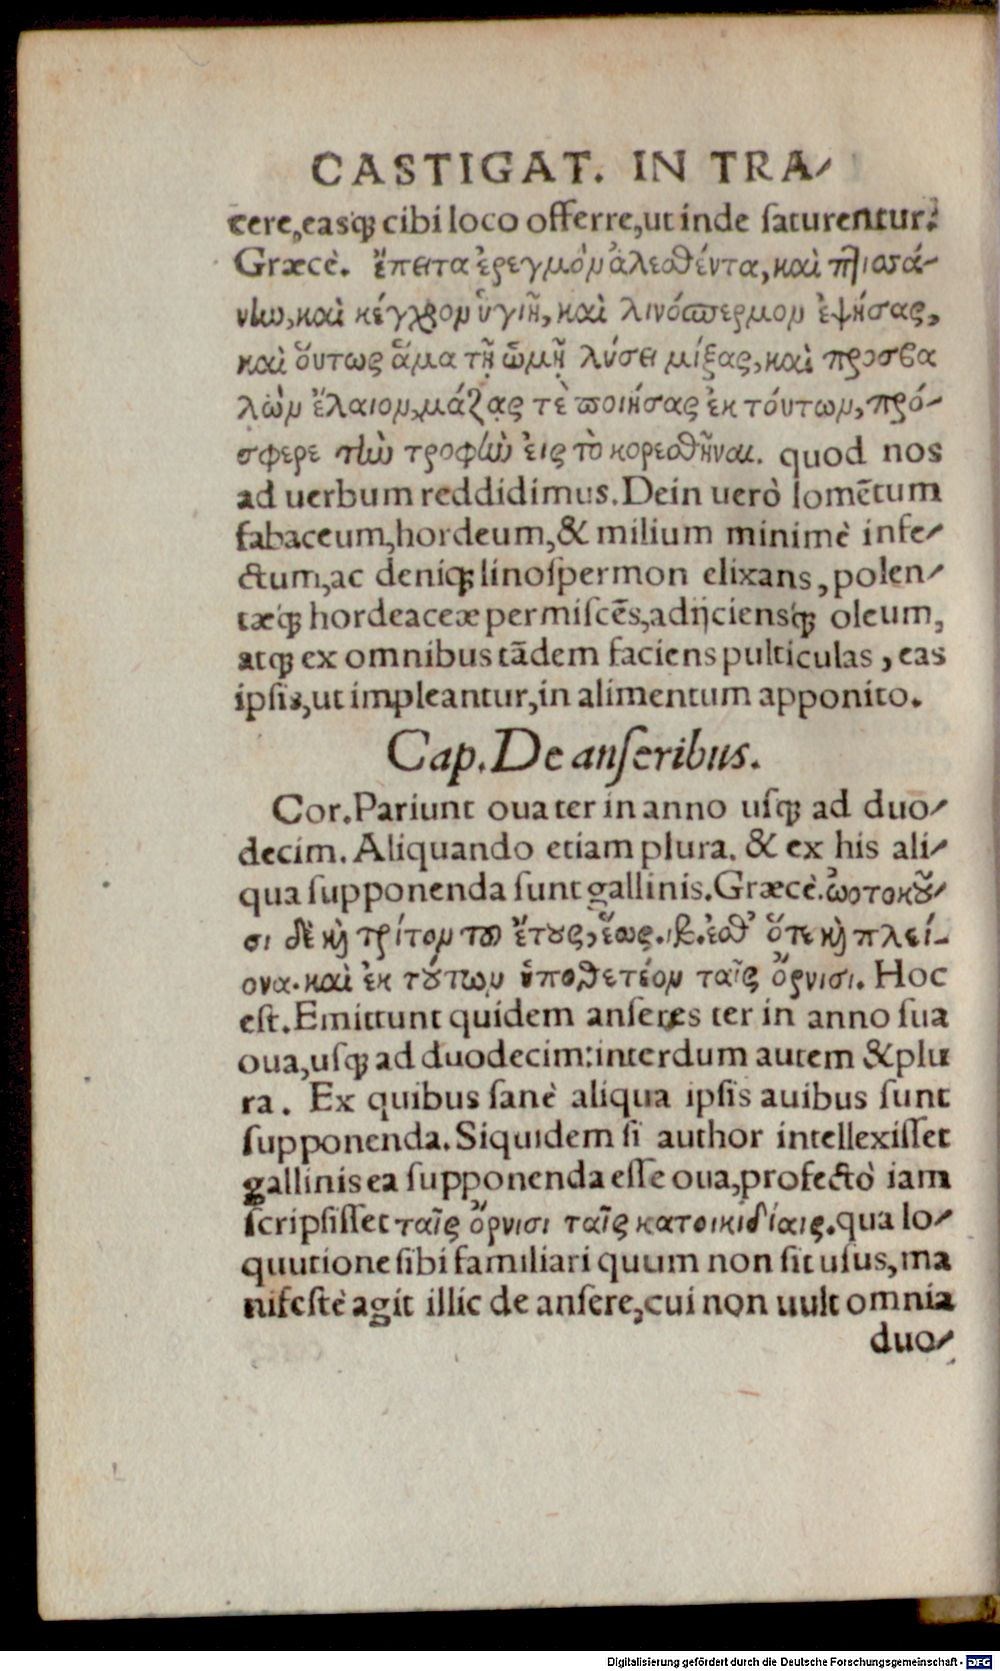 CASTIGAT. IN TRA-
cere, easq́; cibi loco offerre, ut inde saturentur.
Græcè. ἔπειτα ἐρεγμὸν ἀλεσθέντα, καὶ πτισά-
νίω, καὶ κέγχρον ὑγιῆ, καὶ λινόσπερμον ἑψήσας,
καὶ ὅυτως ἅμα τῇ ὠμῇ λύσει μίξας, καὶ προσβα
λὼν ἔλαιον, μάζας τὲ ποιήσας ἐκ τόυτων, πρό-
σφερε τὴν τροφὴν ἐις τὸ κορεσθῆναι. quod nos
ad uerbum reddidimus. Dein uerò lomẽtum
fabaceum, hordeum, & milium minimè infe-
ctum, ac deniq; linospermon elixans, polen-
tæq́; hordeaceæ permiscẽs, adijciensq́; oleum,
atq; ex omnibus tãdem faciens pulticulas, eas
ipsis, ut impleantur, in alimentum apponito.
Cap. De anseribus.
Cor. Pariunt oua ter in anno usq; ad duo-
decim. Aliquando etiam plura. & ex his ali-
qua supponenda sunt gallinis. Græcè. ὠοτοκοῦ-
σι δὲ καὶ τρίτον τοῦ ἔτους, ἕως. ιβ. ἔσθ' ὅτε καὶ πλεί-
ονα. καὶ ἐκ τούτων ὑποθετέον ταῖς ὄρνισι. Hoc
est. Emittunt quidem anseres ter in anno sua
oua, usq; ad duodecim: interdum autem & plu
ra. Ex quibus sanè aliqua ipsis auibus sunt
supponenda. Siquidem si author intellexisset
gallinis ea supponenda esse oua, profectò iam
scripsisset ταῖς ὄρνισι ταῖς κατοικιδίαις. qua lo-
quutione sibi familiari quum non sit usus, ma
nifestè agit illic de ansere, cui non uult omnia
duo-
Digitalisierung gefördert durch die Deutsche Forschungsgemeinschaft - DFG